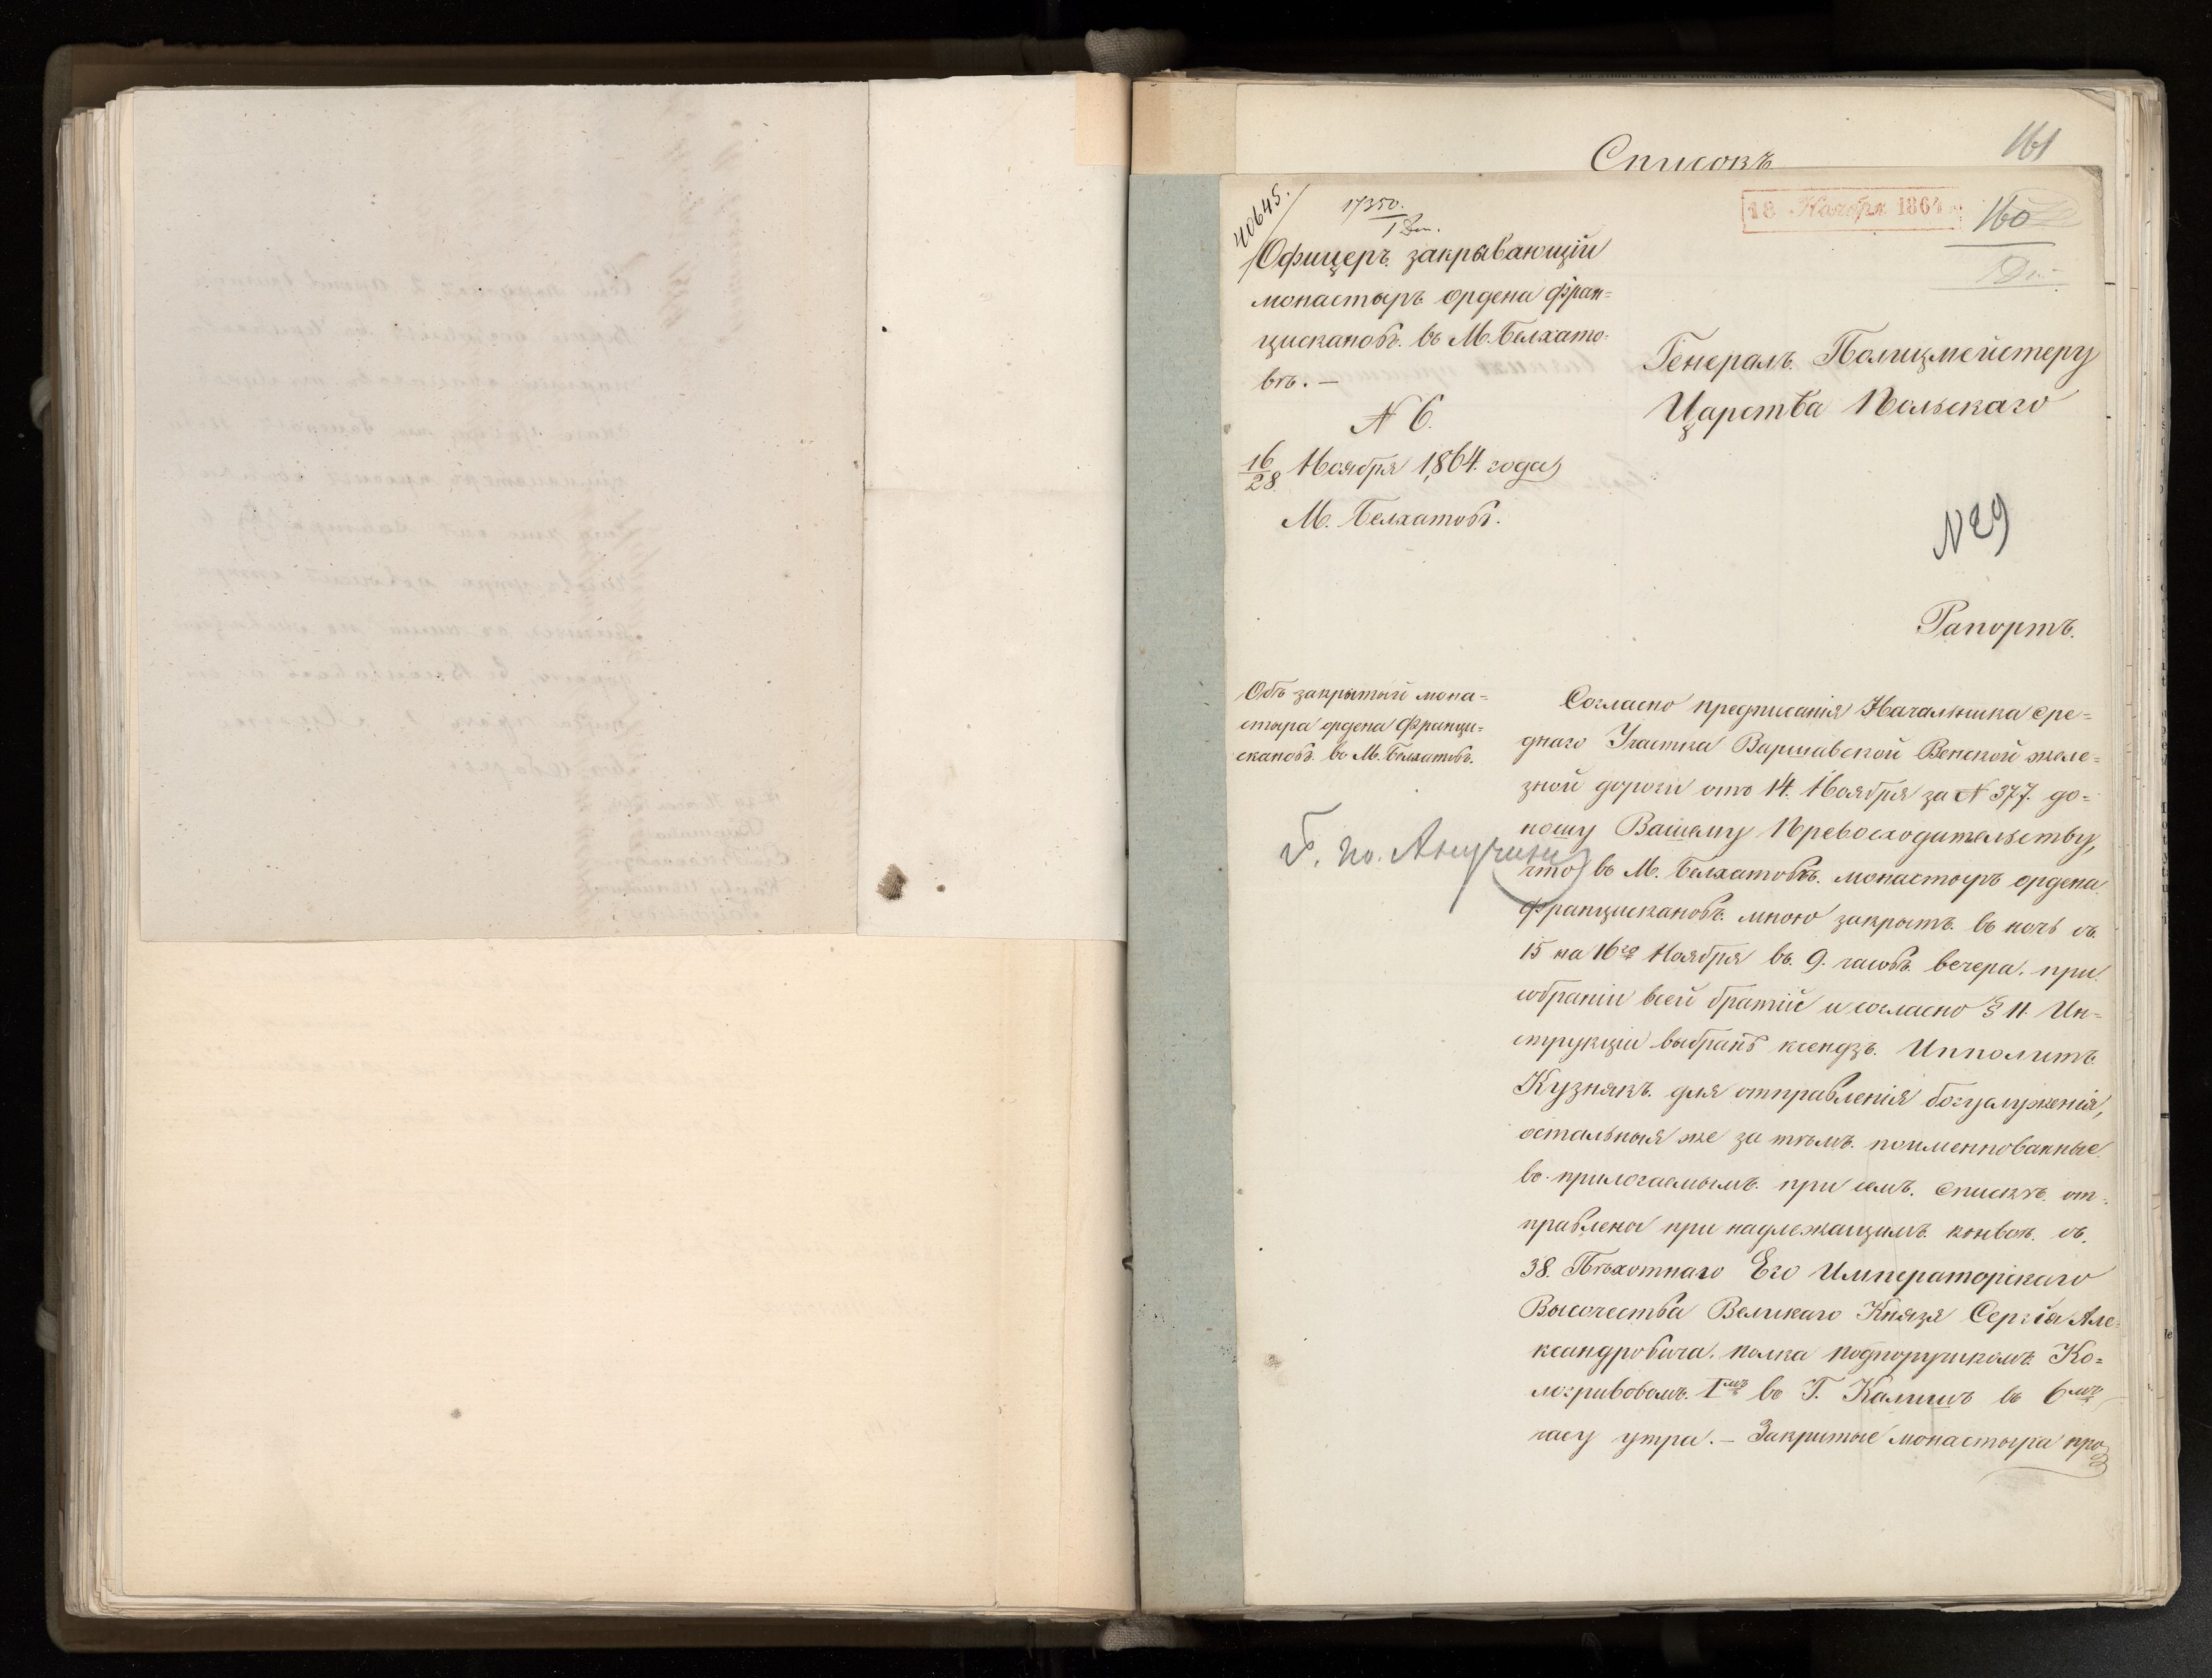 Списокъ
161
40645.
17350.
18 Ноября 1864
160
Офицеръ закрывающій
монастырь ордена фран=
цискановъ. въ М. Белхато-
вѣ. —
N 6.
16/28 Ноября 1864. года
М. Белхатовъ.
Генералъ Полицмейстеру
Царства Польскаго
N 29
Рапортъ.
Объ закрытый мона=
стыра ордена Франци=
скановъ. въ М. Белхатовъ.
Согласно предписанія Начальника Сре=
дняго Участка Варшавской Венской желе=
зной дороги отъ 14. Ноября за N 377. до=
ношу Вашему Превосходительству,
что въ М. Белхатовѣ. монастыръ ордена
францискановъ. мною закрытъ. въ ночь съ.
15 на 16го Ноября въ. 9. часовъ. вечера. при
собраніи всей братій и согласно § 11. Ин=
струкціи выбранъ ксендзъ. Ипполитъ
Кузнякъ. для отправленія богуслуженія,
остальныя же за тѣмъ. поименнованные
въ прилогаемымъ. при семъ. спискѣ. от-
правлены при надлежащимъ. конвоѣ. съ.
38. Пѣхотнаго Его Императорскаго
Высочества Великаго Князя Сергія Але-
ксандровича. полка подпоручикомъ Ко=
логривовомъ. Iмъ въ Г. Калишъ въ 6мъ
часу утра. — Закрытые монастыра про